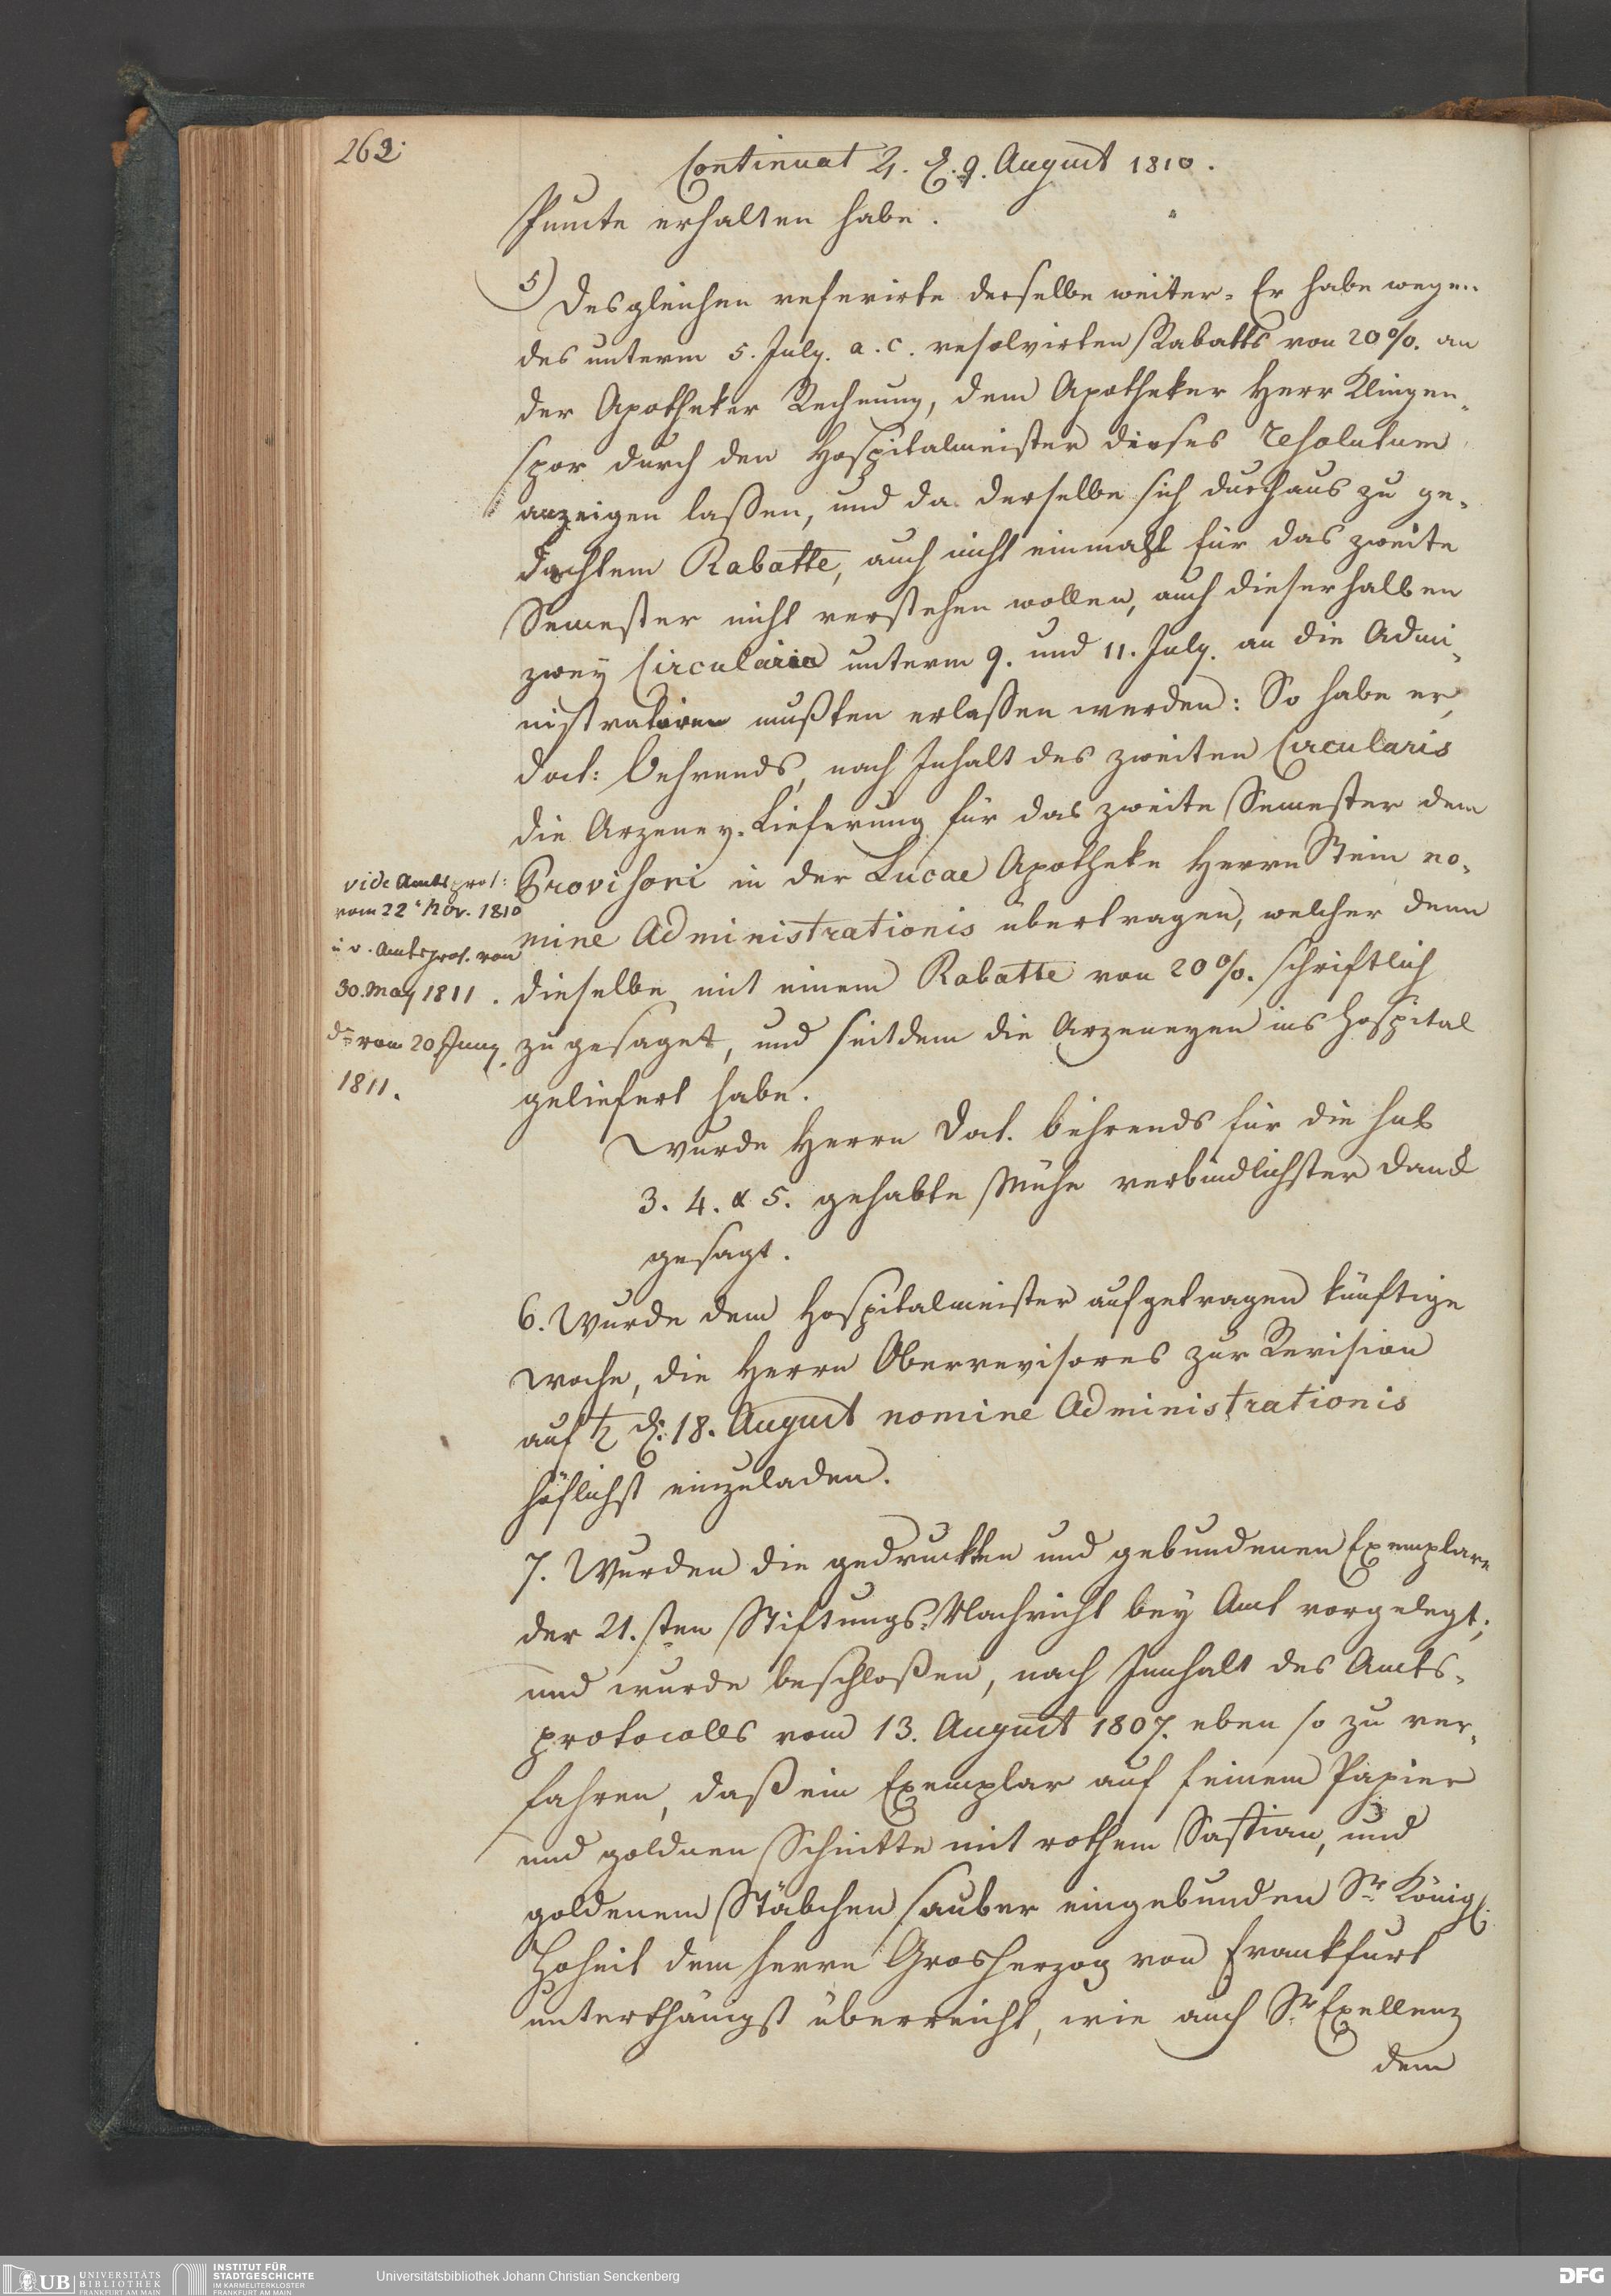 262.
Continuat ♃. d. 9. August 1810.
Puncte erhalten habe.
5) Desgleichen referirte derselbe weiter. Er habe wegen
des unterm 5. July. a. c. resolvirten Rabatts von 20 %. an
der Apotheker Rechnung, dem Apotheker Herr Klingen-
spor durch den Hospitalmeister dieses resolutum
anzeigen lassen, und da derselbe sich durchaus zu ge-
dachtem Rabatte, auch nicht einmahl für das zweite
Semester nicht verstehen wollen, auch dieserhalben
zwey Circularia unterm 9. und 11. July. an die Admi-
nistratoren mußten erlassen werden: So habe er,
doct: Behrends, nach Inhalt des zweiten Circularis
die Arzeney-Lieferung für das zweite Semester dem
Provisori in der Lucae Apotheke Herrn Stein no-
mine Administrationis übertragen, welcher denn
dieselbe mit einem Rabatte von 20 %. schriftlich
zugesaget, und seitdem die Arzeneyen ins Hospital
geliefert habe.
vide Amtsprot:
vom 22t Nov. 1810
u v. Amtsprot. vom
30. May 1811.
do vom 20 Juny
1811.
Wurde Herrn Doct. Behrends für die sub
3. 4. & 5. gehabte Mühe verbindlichster Danck
gesagt.
6. Wurde dem Hospitalmeister aufgetragen künftige
Woche, die Herrn Oberrevisores zur Revision
auf ♄ d. 18. August nomine Administrationis
höflichst einzuladen.
7. Wurden die gedruckten und gebundenen Exemplare
der 21.sten Stiftungs-Nachricht bey Amt vorgelegt;
und wurde beschloßen, nach Innhalt des Amts-
protocolls vom 13. August 1807. eben so zu ver-
fahren, daß ein Exemplar auf feinem Papier
und goldnen Schnitte mit rothem Saffian, und
goldenem Stäbchen sauber eingebunden Sr. Königl.
Hoheit dem Herrn Grosherzog von Frankfurt
unterthänigst überreicht, wie auch Sr. Exellenz
dem
UB UNIVERSITÄTS
BIBLIOTHEK
FRANKFURT AM MAIN
INSTITUT FÜR
STADTGESCHICHTE
IM KARMELITERKLOSTER
FRANKFURT AM MAIN
Universitätsbibliothek Johann Christian Senckenberg
DFG